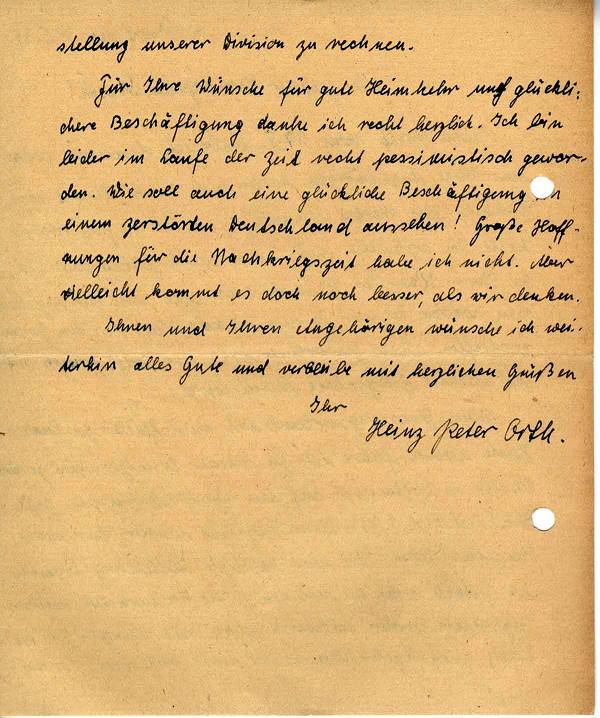 stellung unserer Division zu rechnen.
Für Ihre Wünsche für gute Heimkehr und glückli-
chere Beschäftigung danke ich recht herzlich. Ich bin
leider im Laufe der Zeit recht pessimistisch gewor-
den. Wie soll auch eine glückliche Beschäftigung in
einem zerstörten Deutschland aussehen! Große Hoff-
nungen für die Nachkriegszeit habe ich nicht. Aber
vielleicht kommt es doch noch besser, als wir denken.
Ihnen und Ihren Angehörigen wünsche ich wei-
terhin alles Gute und verbleibe mit herzlichen Grüßen
Ihr
Heinz Peter Orth.